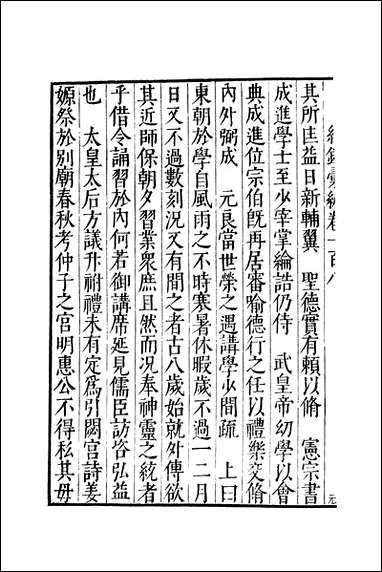 紀錄彙編卷一百八
其所匡益日新輔翼　聖德實有賴以脩　憲宗書
成進學士至少宰掌綸誥仍侍　武皇帝幼學以會
典成進位宗伯旣再居審喻德行之任以禮樂交脩
內外弼成　元良當世榮之遇講學少間疏　上曰
東朝於學自風雨之不時寒暑休暇歲不過一二月
日又不過數刻況又有間之者古八歲始就外傅欲
其近師保朝夕習業衆庶且然而況奉神靈之統者
乎借令誦習於內何若御講席延見儒臣訪咨弘益
也　太皇太后方議升祔禮未有定爲引閟宮詩姜
嫄祭於別廟春秋考仲子之宮明惠公不得私其母
元